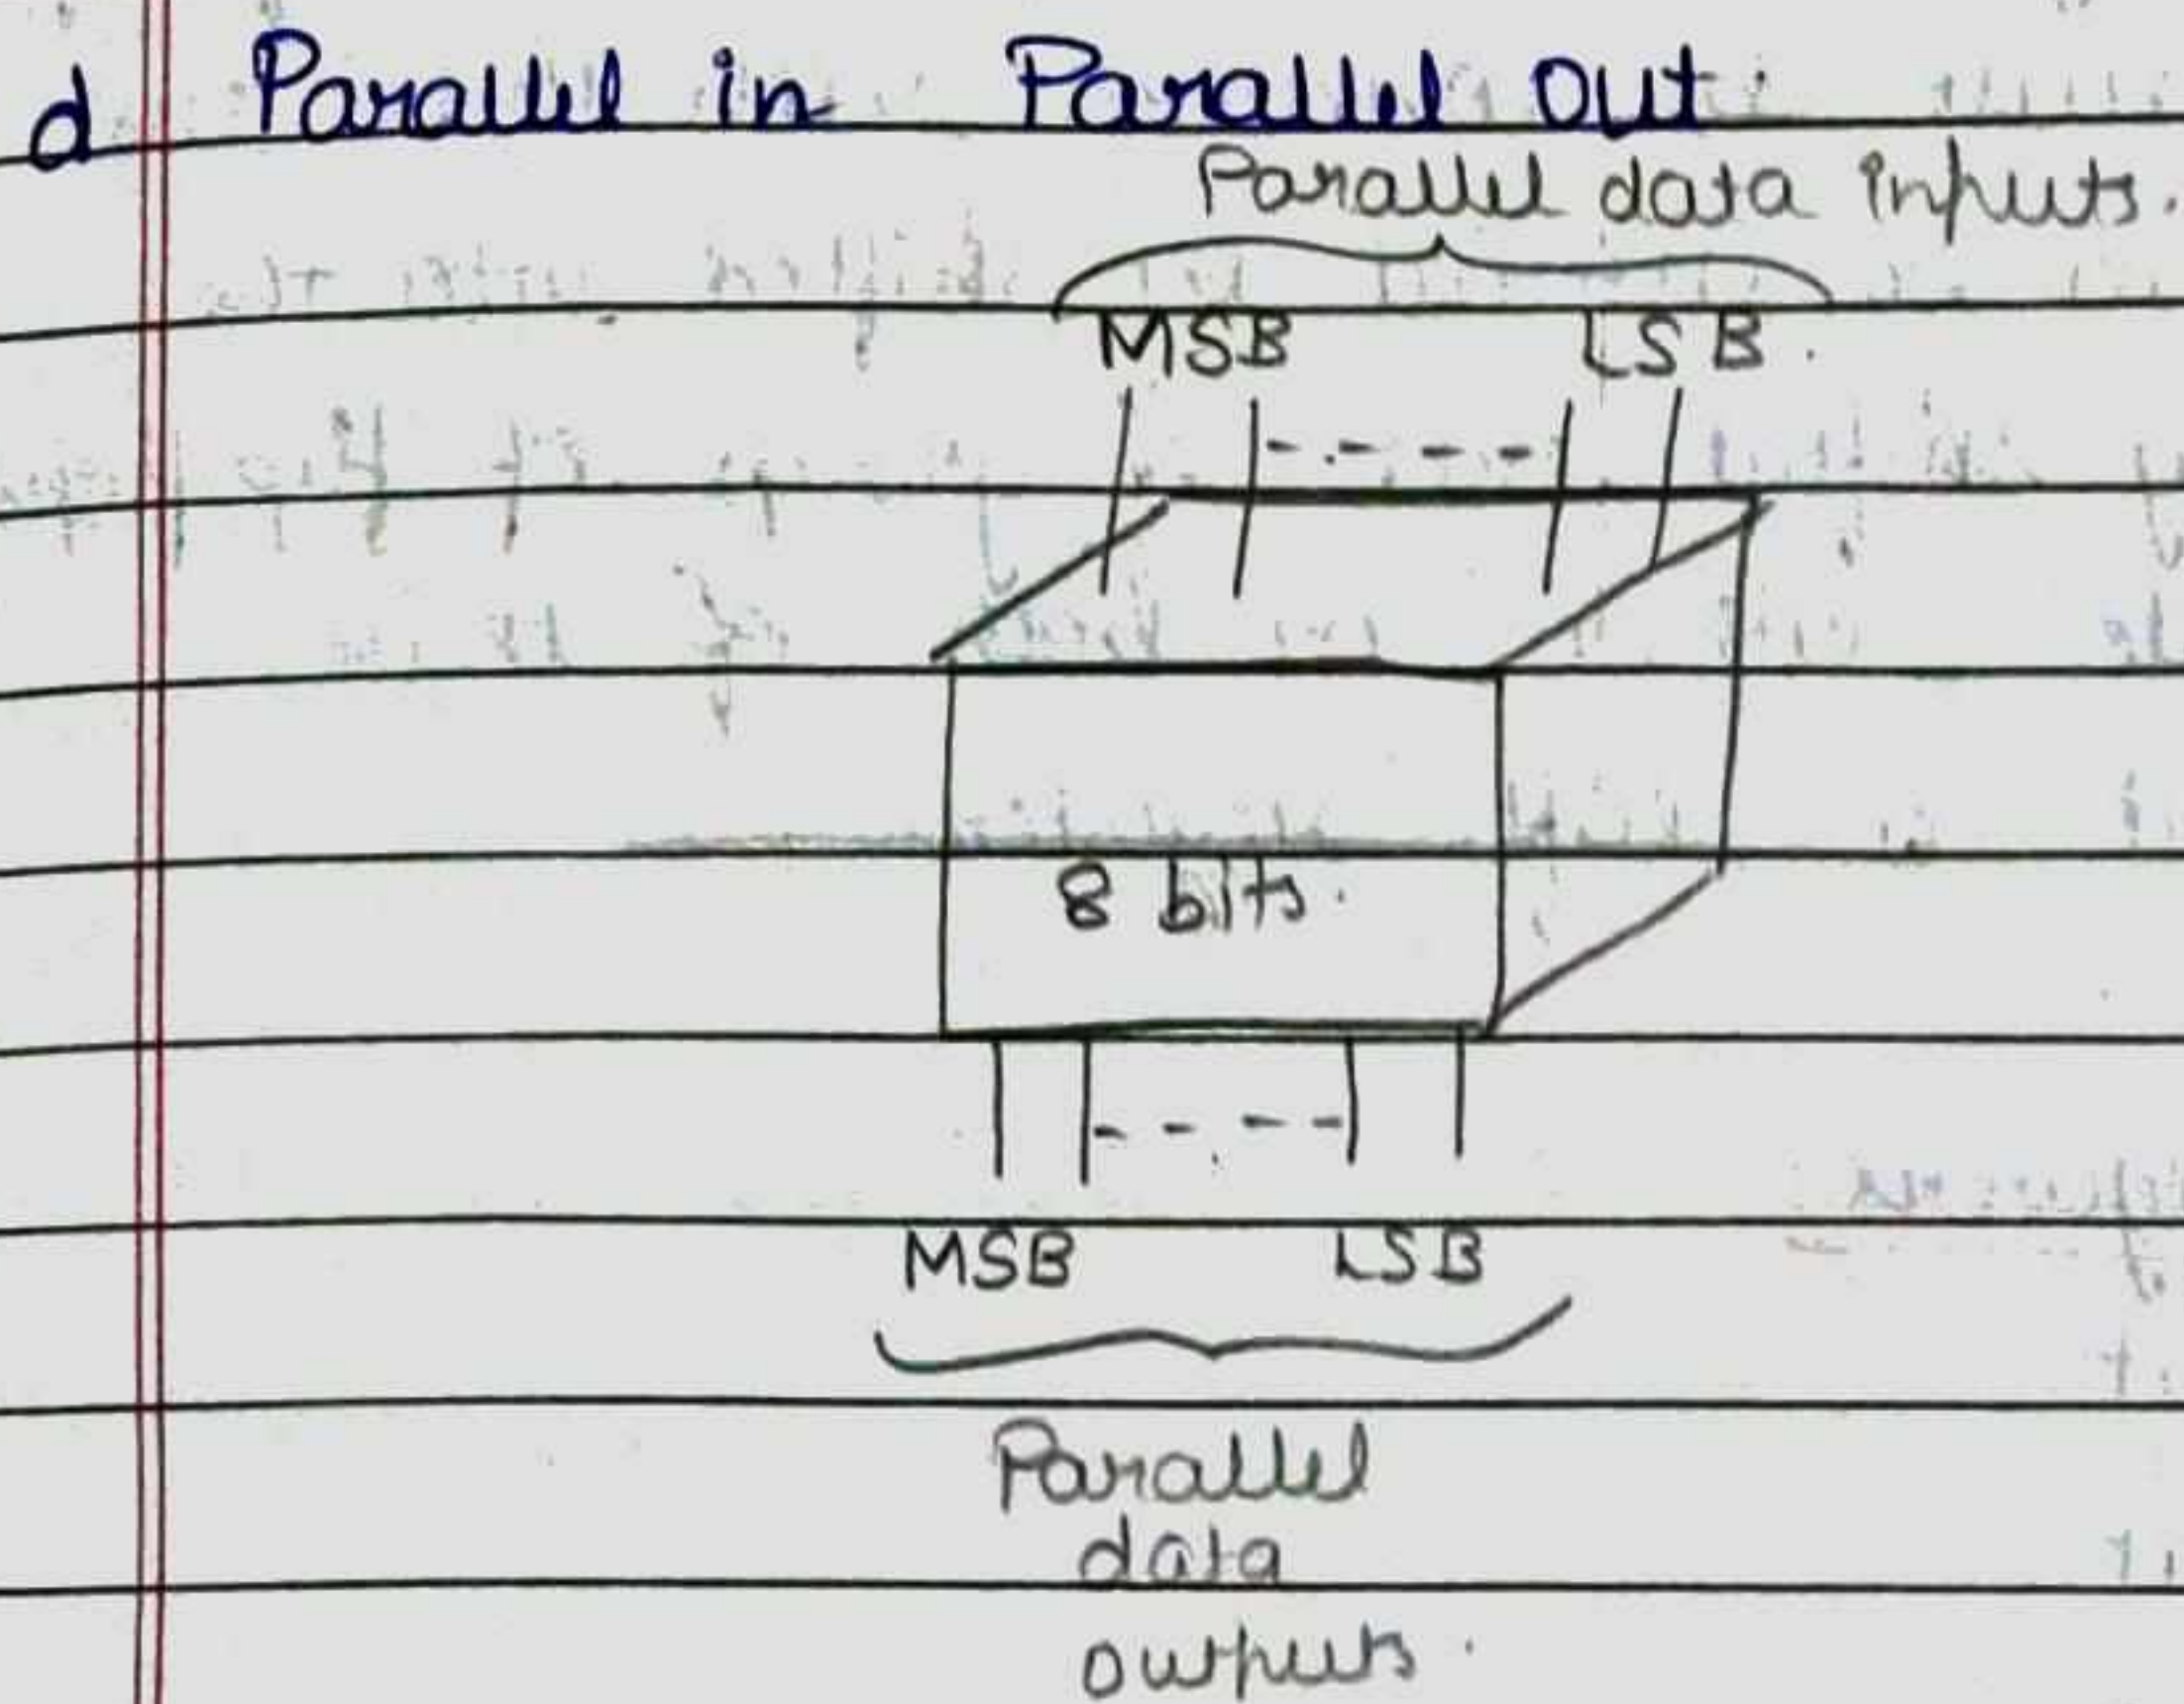 d Parallel in Parallel out
Parallel data inputs.
MSB LSB.
8 bits.
MSB LSB
Parallel
data
outputs.